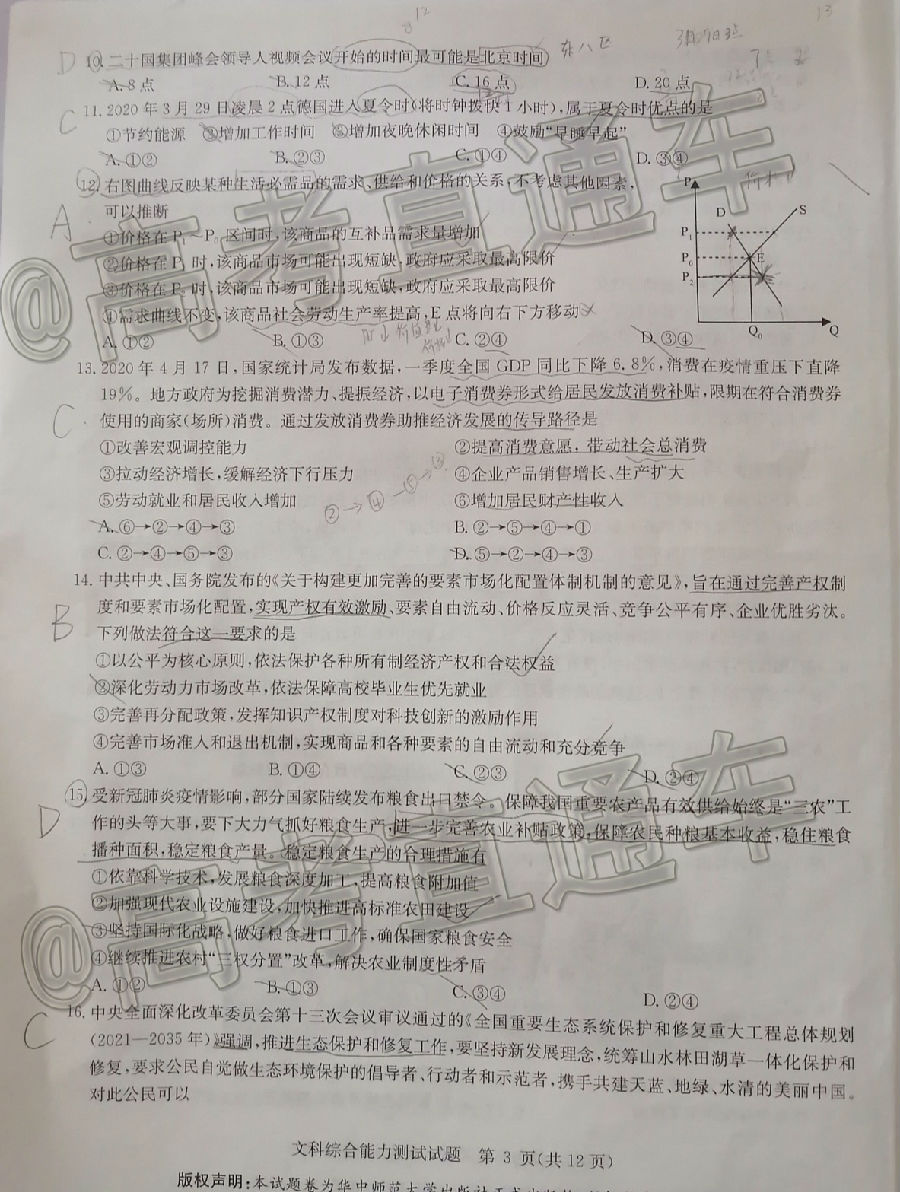 12
8
13
D 10. 二十国集团峰会领导人视频会议开始的时间最可能是(北京时间) 东八区
A. 8 点 B. 12 点 C. 16 点 D. 20 点
C 11. 2020 年 3 月 29 日凌晨 2 点德国进入夏令时(将时钟拨快 1 小时),属于夏令时优点的是
①节约能源 ②增加工作时间 ③增加夜晚休闲时间 ④鼓励“早睡早起”
A. ①② B. ②③ C. ①④ D. ③④
12. 右图曲线反映某种生活必需品的需求、供给和价格的关系,不考虑其他因素,
可以推断
A
①价格在 P₁—P₀ 区间时,该商品的互补品需求量增加
②价格在 P₂ 时,该商品市场可能出现短缺,政府应采取最高限价
③价格在 P₁ 时,该商品市场可能出现短缺,政府应采取最高限价
④需求曲线不变,该商品社会劳动生产率提高,E 点将向右下方移动
A. ①② B. ①③ C. ②④ D. ③④
P
D
S
P₁
P₀
E
P₂
Q₀
Q
13. 2020 年 4 月 17 日,国家统计局发布数据,一季度全国 GDP 同比下降 6.8%,消费在疫情重压下直降
19%。地方政府为挖掘消费潜力、提振经济,以电子消费券形式给居民发放消费补贴,限期在符合消费券
C 使用的商家(场所)消费。通过发放消费券助推经济发展的传导路径是
①改善宏观调控能力 ②提高消费意愿,带动社会总消费
③拉动经济增长,缓解经济下行压力 ④企业产品销售增长、生产扩大
⑤劳动就业和居民收入增加 ⑥增加居民财产性收入
②→④→⑤→③
A. ⑥→②→④→③ B. ②→⑤→④→①
C. ②→④→⑤→③ D. ⑤→②→④→③
14. 中共中央、国务院发布的《关于构建更加完善的要素市场化配置体制机制的意见》,旨在通过完善产权制
度和要素市场化配置,实现产权有效激励、要素自由流动、价格反应灵活、竞争公平有序、企业优胜劣汰。
B 下列做法符合这一要求的是
①以公平为核心原则,依法保护各种所有制经济产权和合法权益
②深化劳动力市场改革,依法保障高校毕业生优先就业
③完善再分配政策,发挥知识产权制度对科技创新的激励作用
④完善市场准入和退出机制,实现商品和各种要素的自由流动和充分竞争
A. ①③ B. ①④ C. ②③ D. ②④
15. 受新冠肺炎疫情影响,部分国家陆续发布粮食出口禁令。保障我国重要农产品有效供给始终是“三农”工
D 作的头等大事,要下大力气抓好粮食生产,进一步完善农业补贴政策,保障农民种粮基本收益,稳住粮食
播种面积,稳定粮食产量。稳定粮食生产的合理措施有
①依靠科学技术,发展粮食深度加工,提高粮食附加值
②加强现代农业设施建设,加快推进高标准农田建设
③坚持国际化战略,做好粮食进口工作,确保国家粮食安全
④继续推进农村“三权分置”改革,解决农业制度性矛盾
A. ①② B. ①③ C. ③④ D. ②④
C 16. 中央全面深化改革委员会第十三次会议审议通过的《全国重要生态系统保护和修复重大工程总体规划
(2021—2035 年)》强调,推进生态保护和修复工作,要坚持新发展理念,统筹山水林田湖草一体化保护和
修复,要求公民自觉做生态环境保护的倡导者、行动者和示范者,携手共建天蓝、地绿、水清的美丽中国。
对此公民可以
@高考直通车
@高考直通车
文科综合能力测试试题 第 3 页(共 12 页)
版权声明:本试题卷为华中师范大学出版社